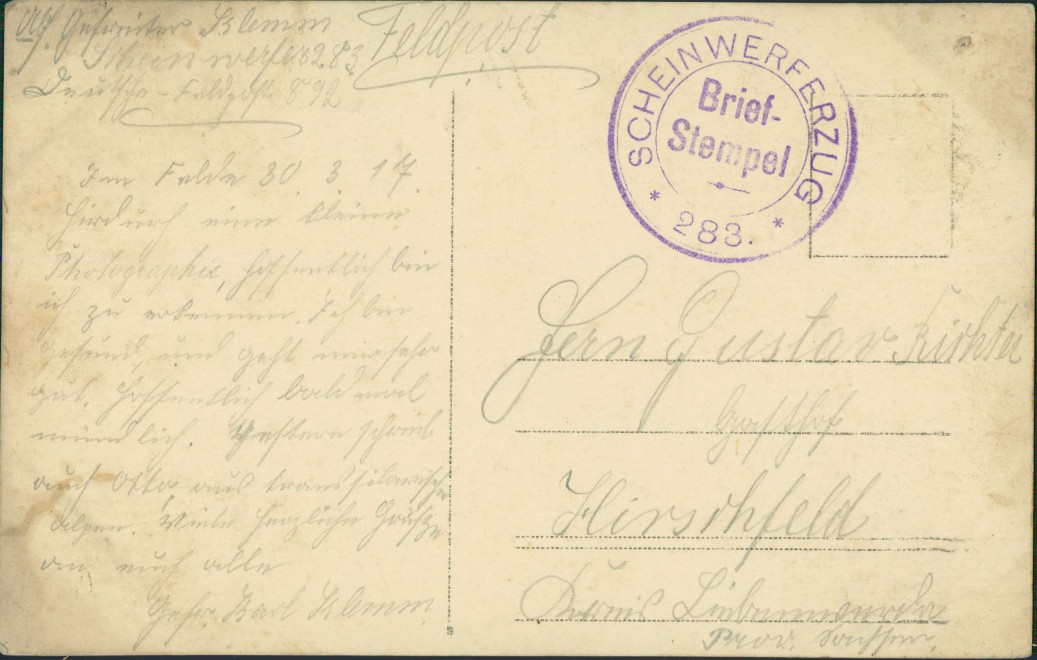 Abs. Gefreiter Klemm
Scheinwerfer 283
Deutsche-Feldpost 892
Feldpost
SCHEINWERFERZUG
Brief-
Stempel
* 283. *
Im Felde 30. 3. 17.
Hirdurch eine kleine
Photographie, hoffentlich bin
ich zu erkennen. Ich bin
gesund, und geht mir sehr
gut. Hoffentlich bald mal
mündlich. Gestern schrieb
auch Otto aus transsilvanische
Alpen. Viele herzliche Grüße
an euch alle
Gefr. Karl Klemm
Herrn Gustav Richter
Gasthof
Hirschfeld
Kreis Liebenwerda
Prov. Sachsen.